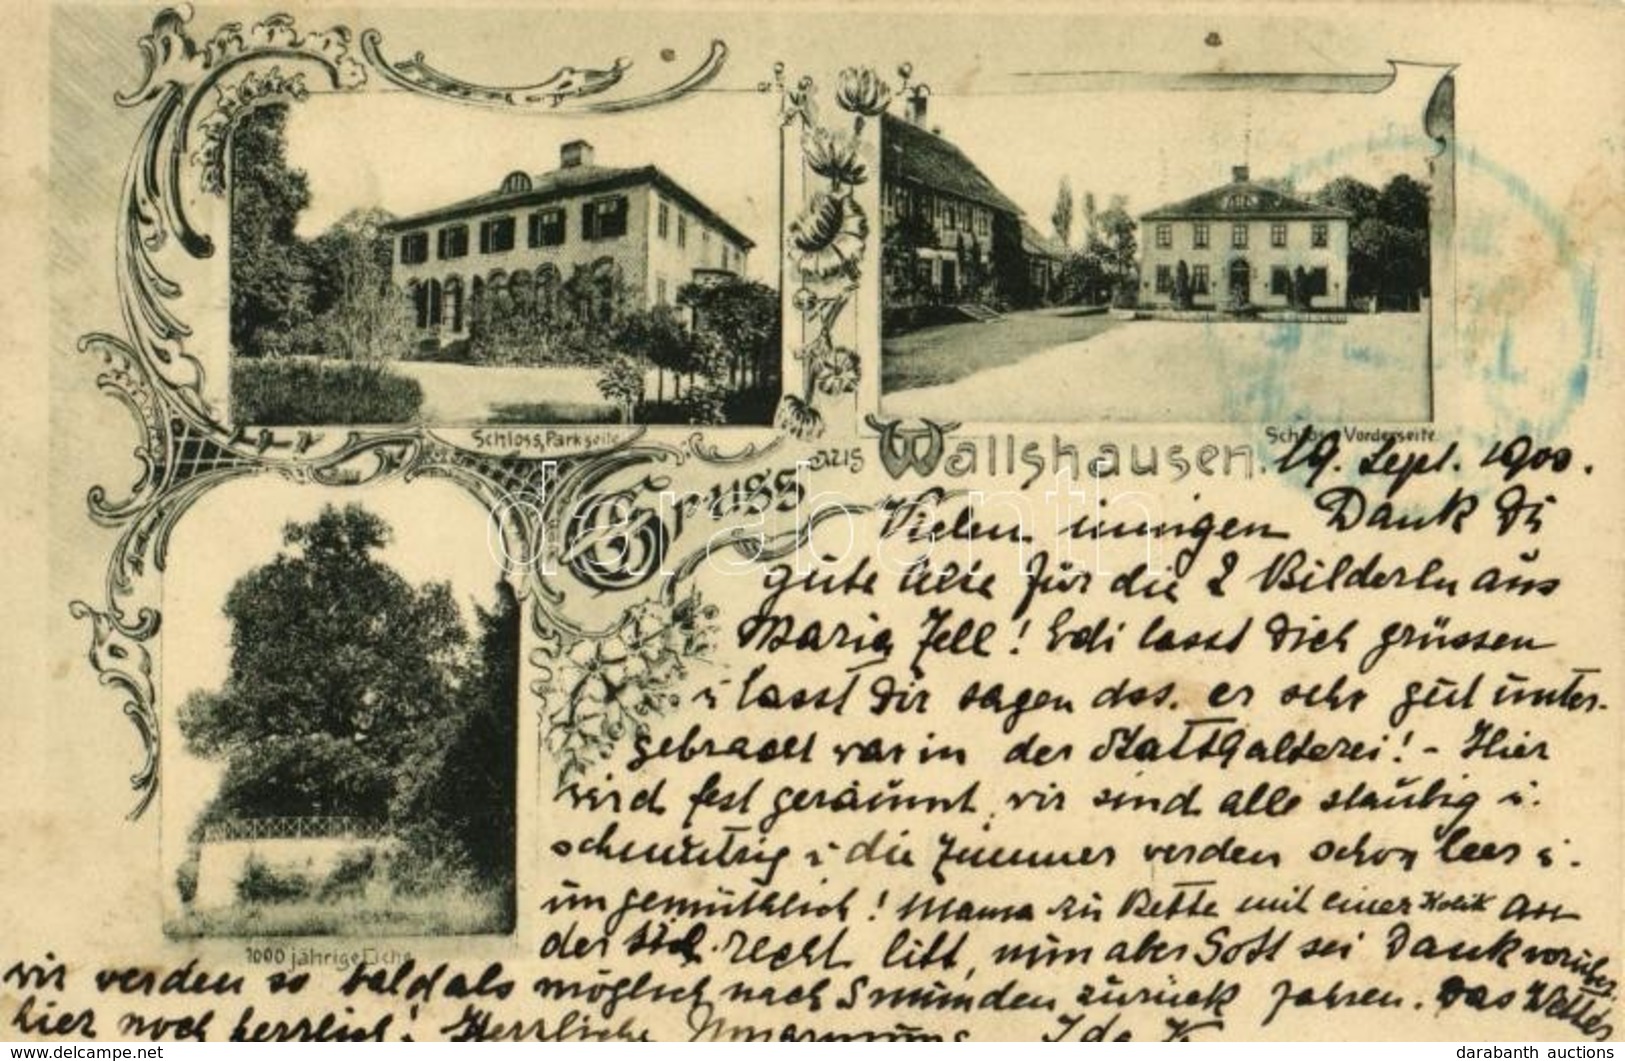 Schloss, Parkseite
Schloss Vorderseite
Gruss aus Wallshausen.
1000 jährige Eiche
19. Sept. 1900.
Vielen innigen Dank Du
gute Alte für die 2 Bilderln aus
Maria Zell! Edi lasst Dich grüssen
u lasst Dir sagen dss. er sehr gut unter-
gebracht war in der Statthalterei! - Hier
wird fest geräumt, wir sind alle staubig u.
schmutzig u die Zimmer werden schon leer u.
ungemüthlich! Mama zu Bette mit einer Kolik an
der sie recht litt, nun aber Gott sei Dank vorüber.
wir werden so bald als möglich nach Gmunden zurück fahren. Das Wetter
hier noch herrlich! Herzliche Umarmung Ida K
darabanth
darabanth auctions
https://www.delcampe.net